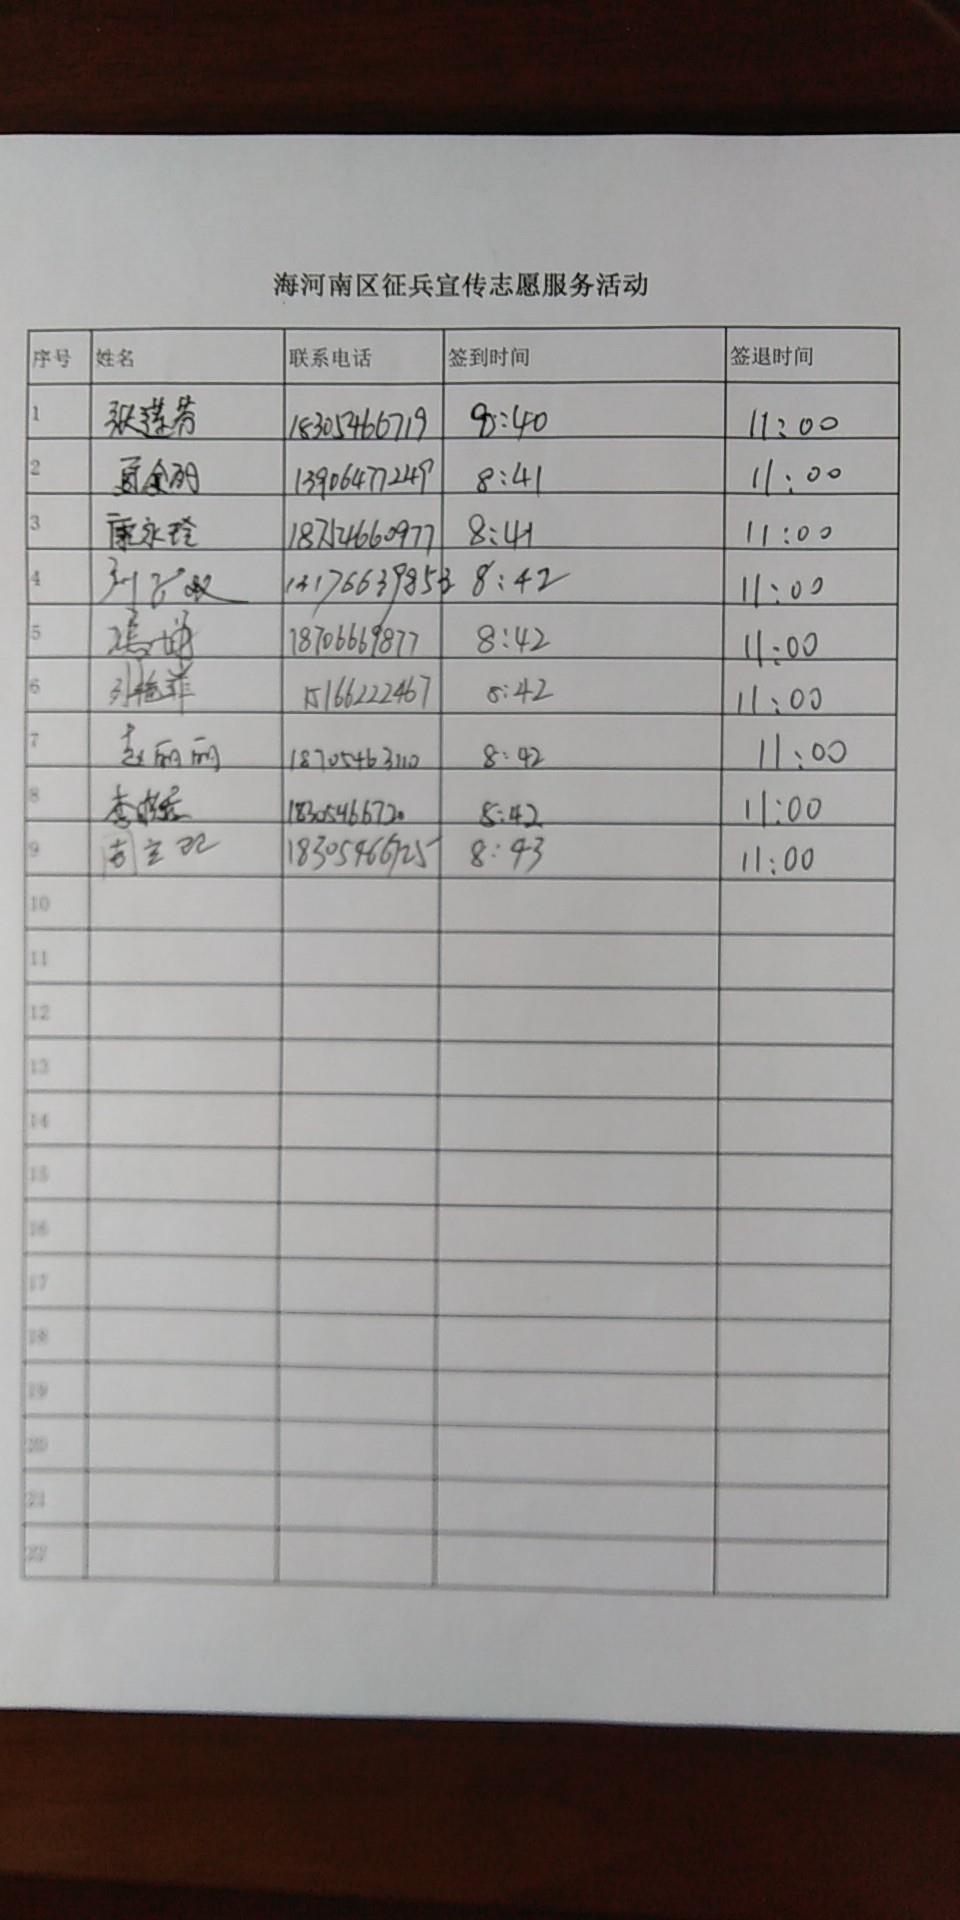 海河南区征兵宣传志愿服务活动
序号 姓名 联系电话 签到时间 签退时间
1 张莲芳 18305466719 8:40 11:00
2 13906477249 8:41 11:00
3 康永玲 8:41 11:00
4 8:42 11:00
5 18706669877 8:42 11:00
6 刘艳菲 15166222467 8:42 11:00
7 赵丽丽 18705463110 8:42 11:00
8 18305466720 8:42 11:00
9 18305466725 8:43 11:00
10
11
12
13
14
15
16
17
18
19
20
21
22